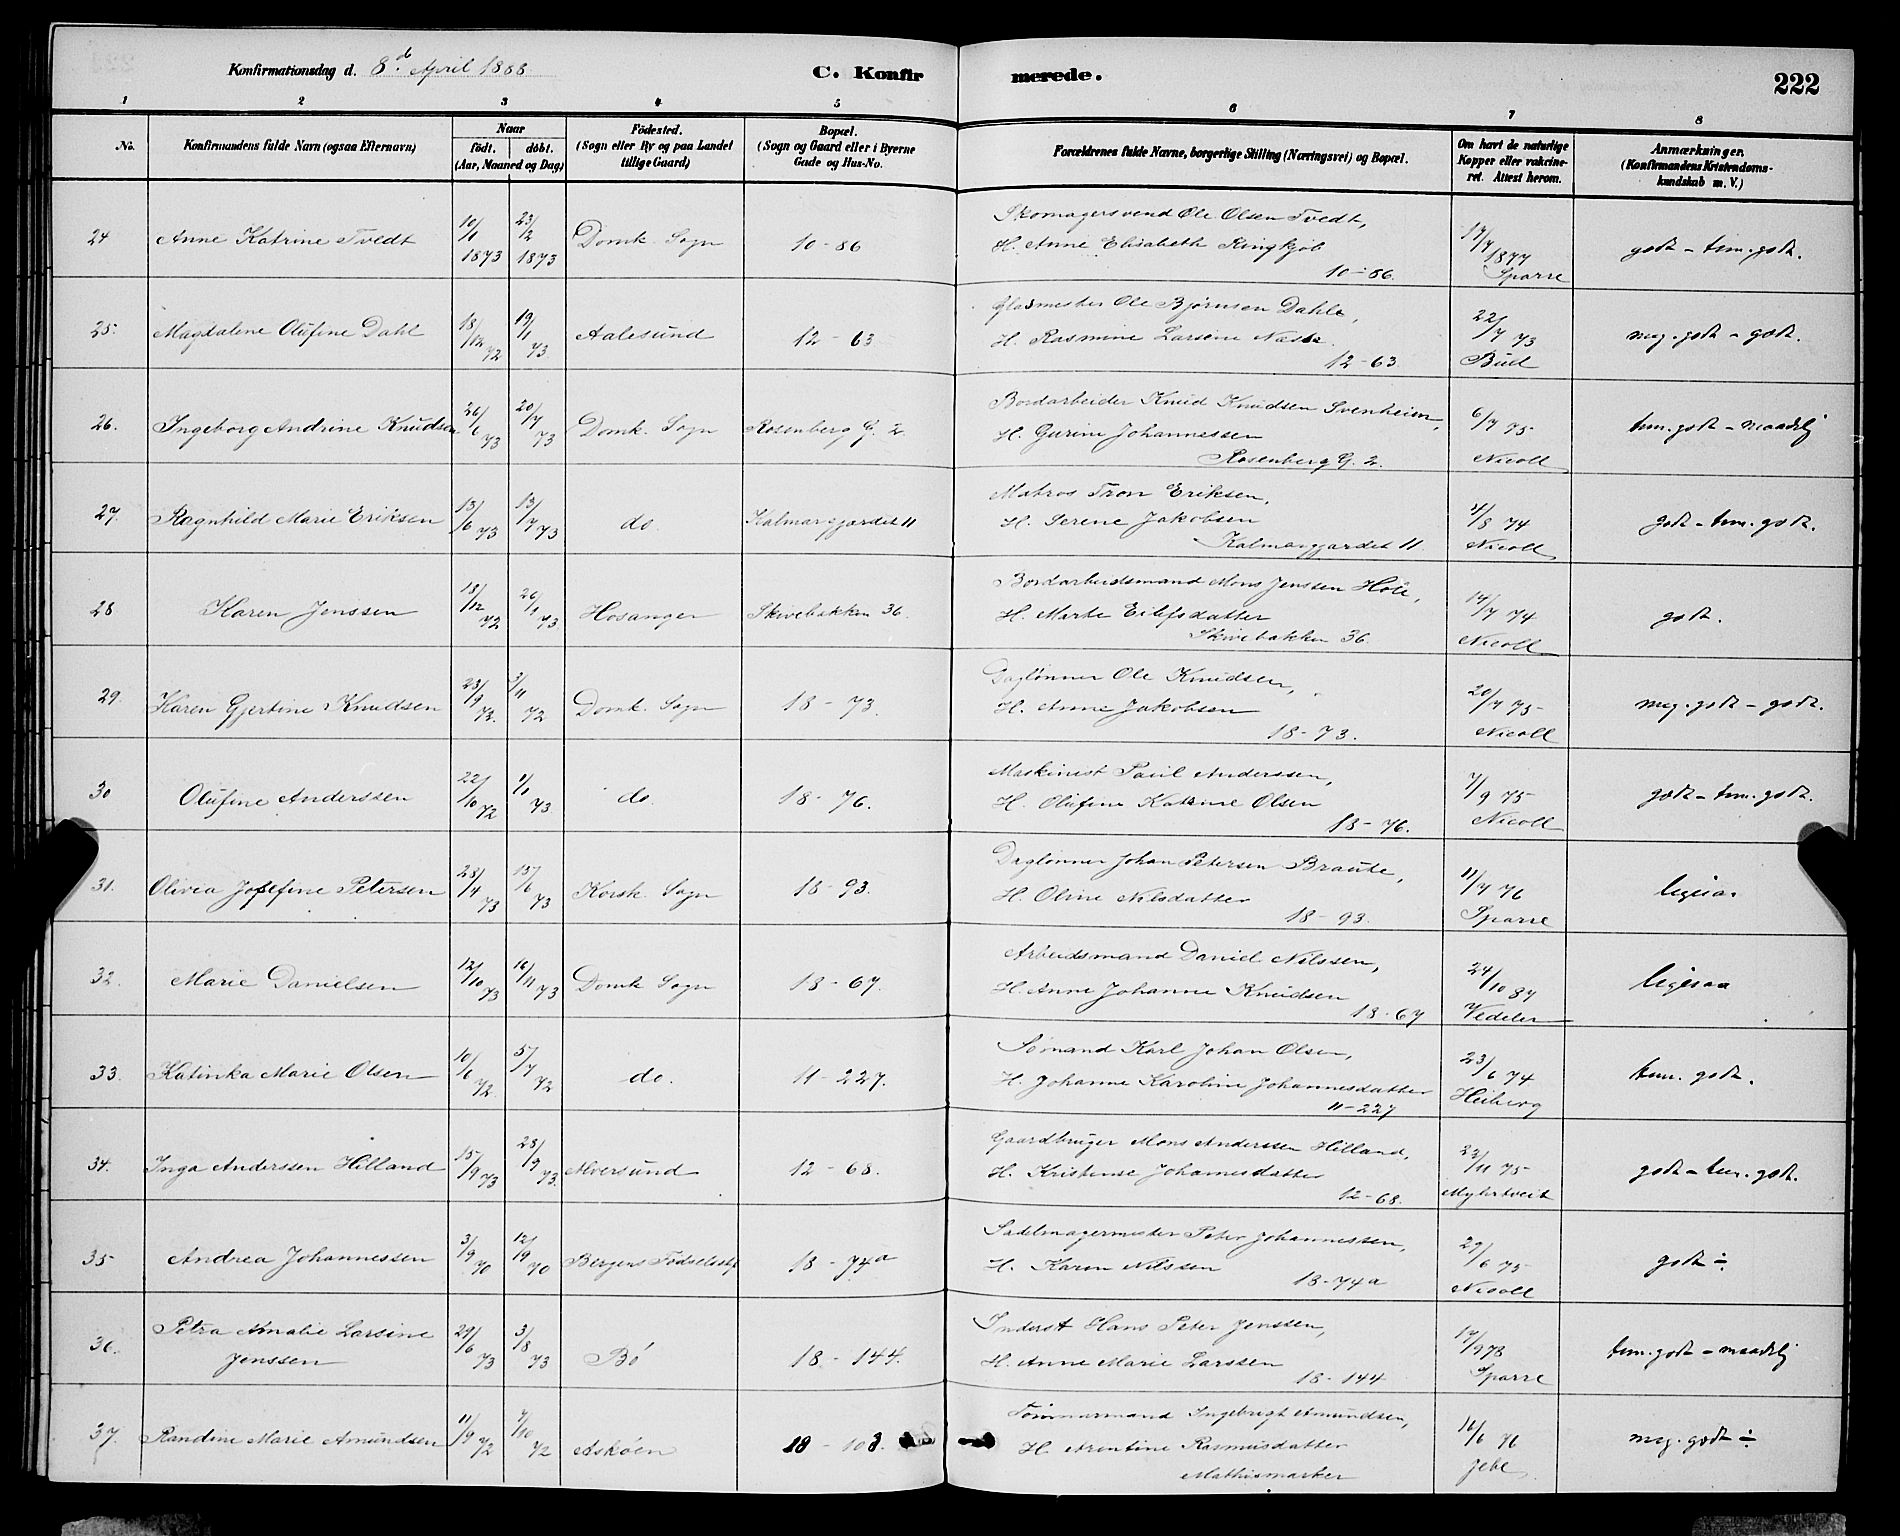 Konfirmationsdag d. 8.d April 1888
C. Konfir merede.
222
1 2 3 4 5 6 7 8
No.
Konfirmandens fulde Navn (ogsaa Efternavn)
Naar
födt. döbt.
(Aar, Maaned og Dag)
Födested.
(Sogn eller By og paa Landet
tillige Gaard)
Bopæl.
(Sogn og Gaard eller i Byerne
Gade og Hus-No.
Forældrenes fulde Navne, borgerlige Stilling (Næringsvei) og Bopæl.
Om havt de naturlige
Kopper eller vakcine-
ret. Attest herom.
Anmærkninger.
(Konfirmandens Kristendoms-
kundskab m. V.)
24 Anne Katrine Tvedt 10/1 1873 23/2 1873 Domk. Sogn 10-86
Skomagersvend Ole Olsen Tvedt,
H. Anne Elisabeth Ringkjöb
10-86.
17/7 1877 Sparre
godt - tem. godt.
25. Magdalene Olufine Dahl 18/12 72 19/1 73. Aalesund 12-63
Glasmester Ole Bjørnsen Dahle,
H. Rasmine Larsine
12-63.
22/7 73 Bull
meg. godt - godt.
26. Ingeborg Andrine Knudsen 26/6 73 20/7 73 Domk. Sogn Rosenberg G. 2.
Bordarbeider Knud Knudsen Svenheim,
H. Gurine Johannessen
Rosenberg G. 2.
6/7 75 Nicoll
tem. godt - maadelig
27. Ragnhild Marie Eriksen 13/6 73 13/7 73 do. Kalmargjærdet 11
Matros Tron Eriksen,
H. Serene Jakobsen
Kalmargjærdet 11
4/8 74 Nicoll
godt - tem. godt.
28 Karen Jenssen 18/12 72 26/1 73 Hosanger Skivebakken 36.
Bordarbeidsmand Mons Jenssen
H. Marte Eilefsdatter
Skivebakken 36.
14/7 74 Nicoll
godt.
29. Karen Gjertine Knudsen 23/9 72. 3/11 72 Domk. Sogn 18-73.
Daglønner Ole Knudsen,
H. Anne Jakobsen
18-73.
20/7 75 Nicoll
meg. godt - godt.
30 Olufine Anderssen 22/10 72 1/1 73. do. 18-76.
Maskinist Paul Anderssen,
H. Olufine Katrine Olsen
18-76.
7/9 75 Nicoll
godt - tem. godt.
31. Olivia Josefine Petersen 28/4 73 15/6 73 Korsk. Sogn 18-93.
Daglønner Johan Petersen
H. Oline Nilsdatter
18-93.
11/7 76 Sparre
ligesaa
32. Marie Danielsen 12/10 73 16/11 73 Domk Sogn 18-67.
Arbeidsmand Daniel Nilssen,
H. Anne Johanne Knudsen
18-67
24/10 87 Vedeler
ligesaa
33. Katinka Marie Olsen 10/6 72. 5/7 72 do. 11-227.
Sømand Karl Johan Olsen,
H. Johanne Karoline Johannesdatter
11-227
23/6 74 Heiberg
tem. godt.
34. Inga Anderssen Hilland 15/9 73 28/9 73. Alversund 12-68.
Gaardbruger Mons Anderssen Hilland,
H. Kristense Johannesdatter
12-68.
23/11 75 Myhrtveit
godt - tem. godt.
35 Andrea Johannessen 3/9 70 12/9 70 Bergens Fødselsst. 18-74a
Sadelmagermester Peter Johannessen,
H. Karen Nilssen
18-74a
29/6 75 Nicoll
godt ÷
36. Petra Amalie Larsine
Jenssen 29/6 73 3/8 73 Bö 18-144.
Inderst Hans Peter Jenssen,
H. Anne Marie Larssen
18-144
17/9 78 Sparre
tem. godt - maadelig
37. Randine Marie Amundsen 11/9 72 7/10 72 Askøen 18-108
Tømmermand Ingebrigt Amundsen,
H. Arentine Rasmusdatter
Mathismarken
16/6 76 Jebe
meg. godt ÷